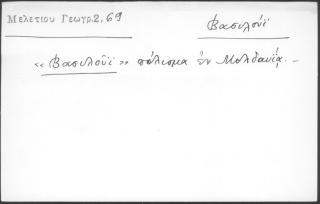 Μελετιου Γεωγρ.2,69
Βασιλοῦϊ
«Βασιλοῦϊ» πόλισμα ἐν Μολδαυίᾳ. –